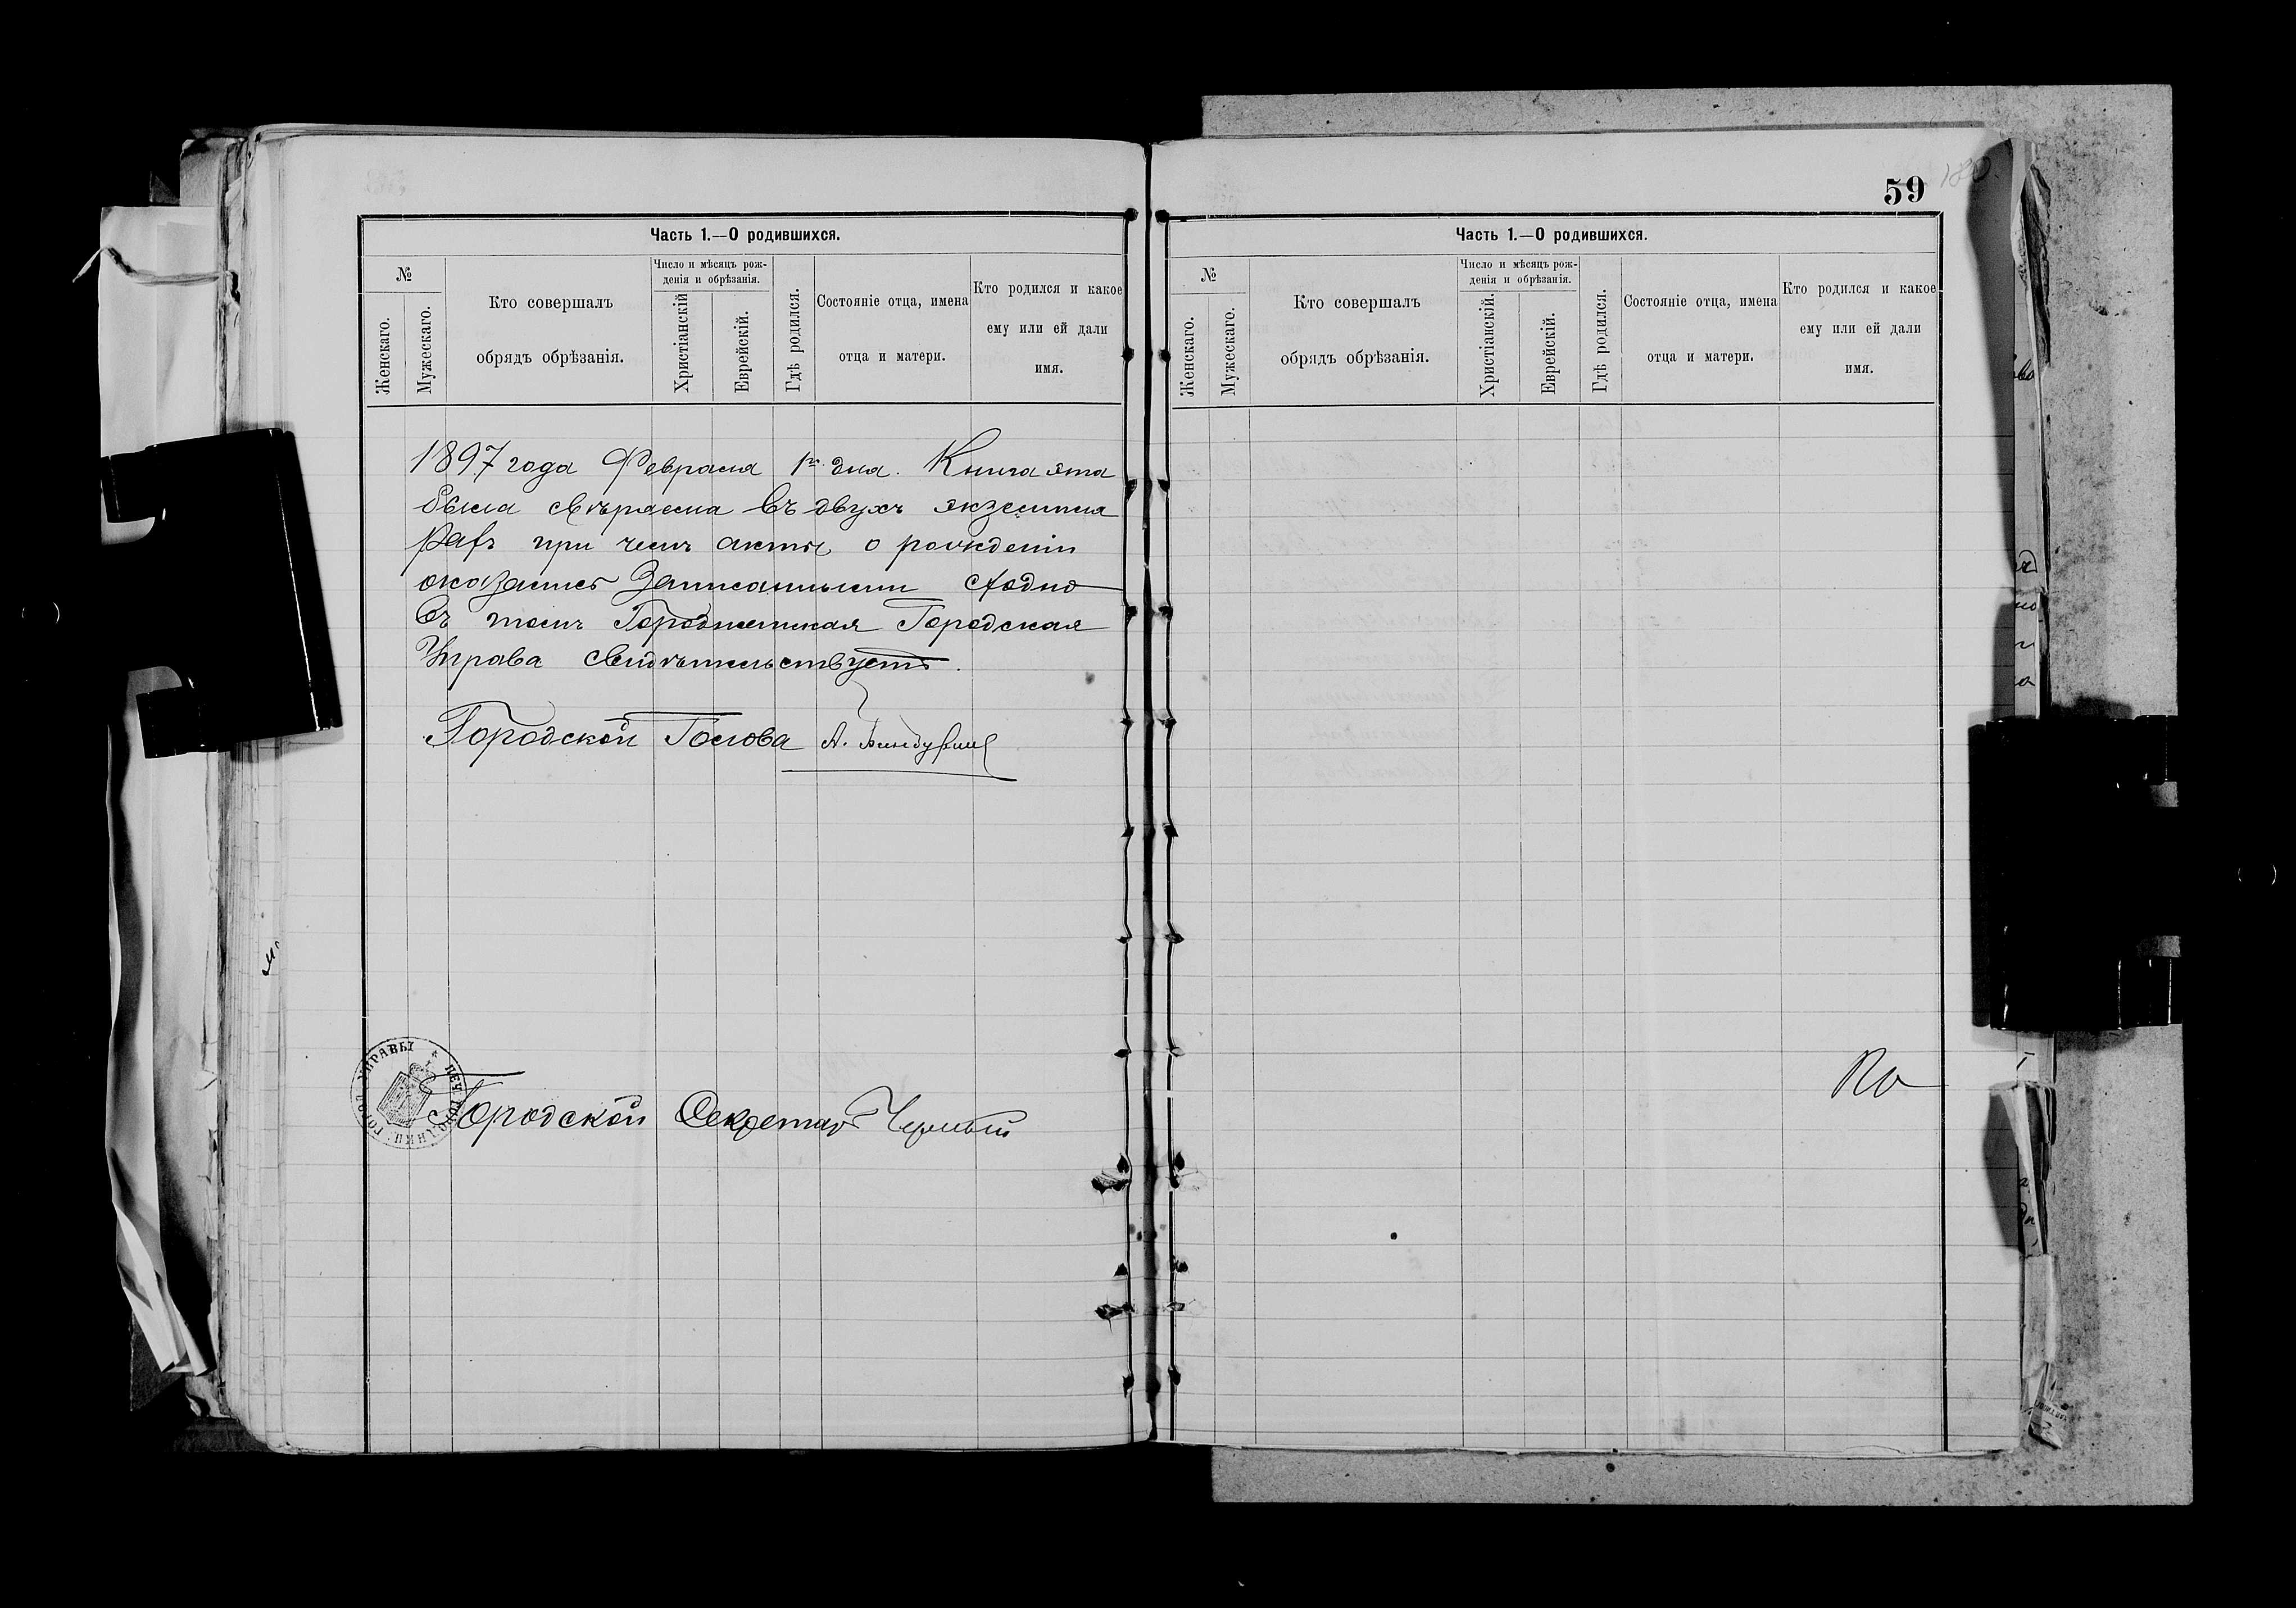 Часть 1.—О родившихся.
№
Женскаго.
Мужескаго.
Кто совершалъ
обрядъ обрѣзанія.
Число и мѣсяцъ рож-
денія и обрѣзанія.
Христіанскій
Еврейскій.
Гдѣ родился.
Состояніе отца, имена
отца и матери.
Кто родился и какое
ему или ей дали
имя.
1897 года Февраля 1го дня. Книга эта
была свѣряема въ двухъ экземпля
рахъ при чемъ акты о рожденіи
оказались записанными сходно
въ томъ Городнянская Городская
Управа свидѣтельствуетъ.
Городской Голова А.
Городской Секретарь Черный
59
Часть 1.—О родившихся.
№
Женскаго.
Мужескаго.
Кто совершалъ
обрядъ обрѣзанія.
Число и мѣсяцъ рож-
денія и обрѣзанія.
Христіанскій.
Еврейскій.
Гдѣ родился.
Состояніе отца, имена
отца и матери.
Кто родился и какое
ему или ей дали
имя.